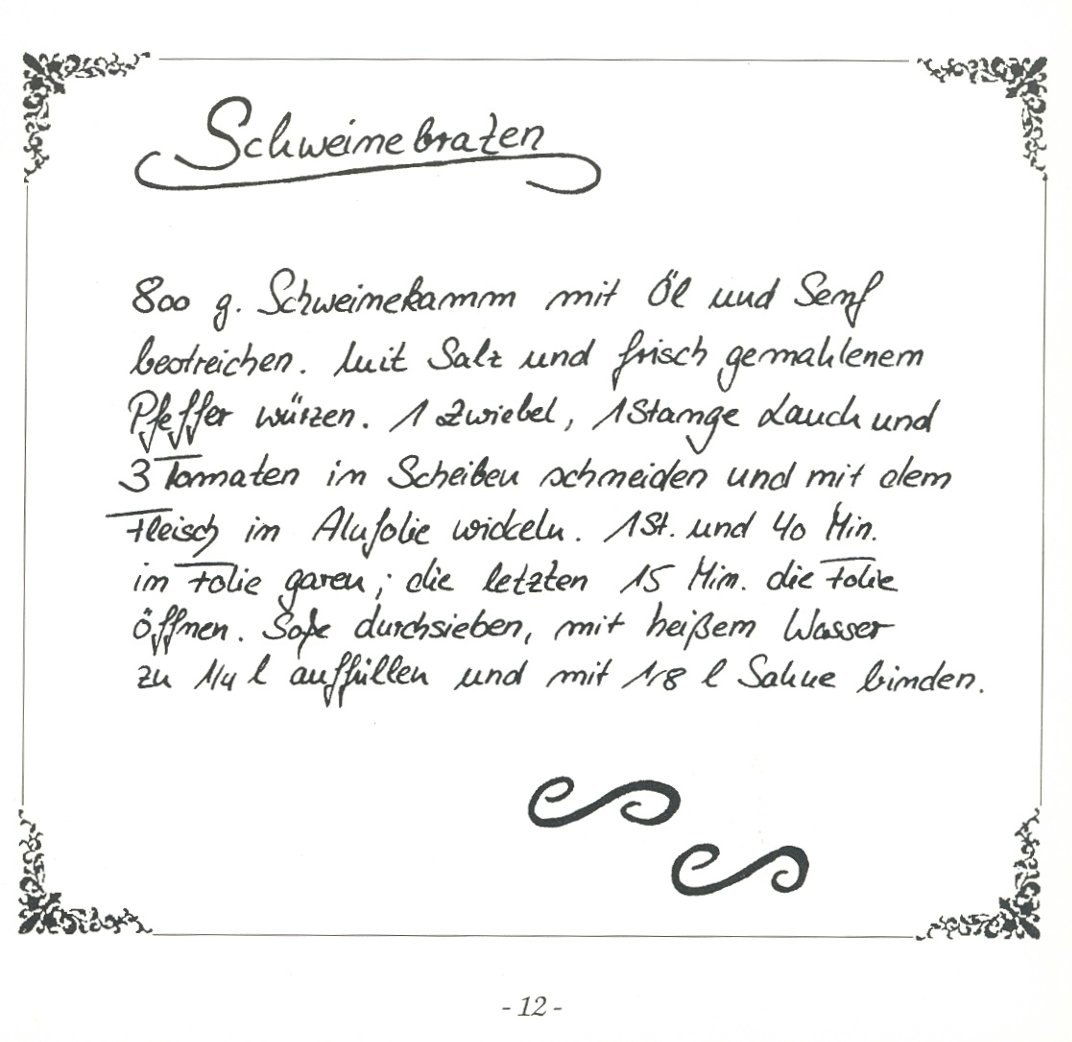 Schweinebraten
800 g. Schweinekamm mit Öl und Senf
bestreichen. Mit Salz und frisch gemahlenem
Pfeffer würzen. 1 Zwiebel, 1 Stange Lauch und
3 Tomaten in Scheiben schneiden und mit dem
Fleisch in Alufolie wickeln. 1 St. und 40 Min.
in Folie garen; die letzten 15 Min. die Folie
öffnen. Soße durchsieben, mit heißem Wasser
zu 1/4 l auffüllen und mit 1/8 l Sahne binden.
- 12 -